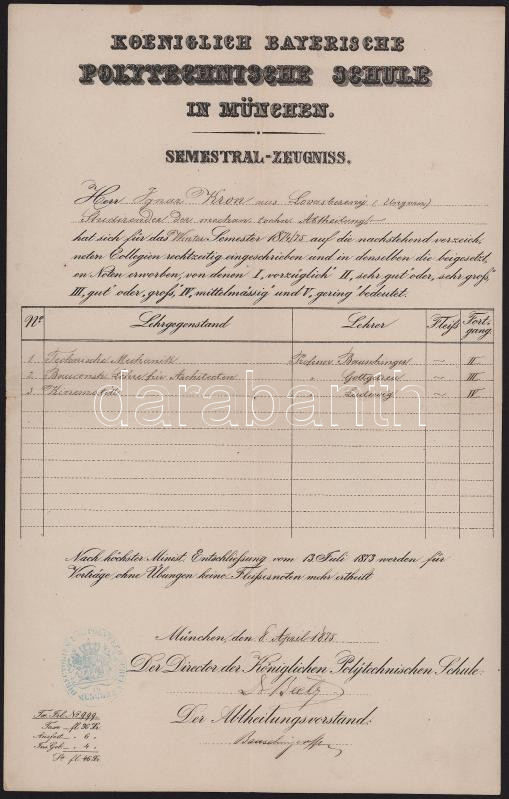 KOENIGLICH BAYERISCHE
POLYTECHNISCHE SCHULE
IN MÜNCHEN.
SEMESTRAL-ZEUGNISS.
Herr Ignaz Kron aus Lovasbereny (Ungarn)
Studirender der mechan. techn. Abtheilung
hat sich für das Winter Semester 1874/75 auf die nachstehend verzeich-
neten Collegien rechtzeitig eingeschrieben und in denselben die beigesetzt-
en Noten erworben, von denen I „vorzüglich" II „sehr gut" oder „sehr groß"
III „gut" oder „groß", IV „mittelmässig" und V „gering" bedeutet.
No. Lehrgegenstand Lehrer Fleiß Fort-
gang.
1. Technische Mechanik Professor Bauschinger ~ II
2. Lehre für Architecten " Gottgetreu ~ III
3. Kinematik " Ludewig ~ IV
darabanth
Nach höchster Minist. Entschließung vom 13 Juli 1873 werden für
Vorträge ohne Übungen keine Fleißesnoten mehr ertheilt
München, den 8 April 1875
Der Director der Königlichen Polytechnischen Schule:
Dr Beetz
Der Abtheilungsvorstand:
Bauschinger
No 999
Taxe fl. 36 Kr.
" 6 "
" 4 "
fl. 46 Kr.